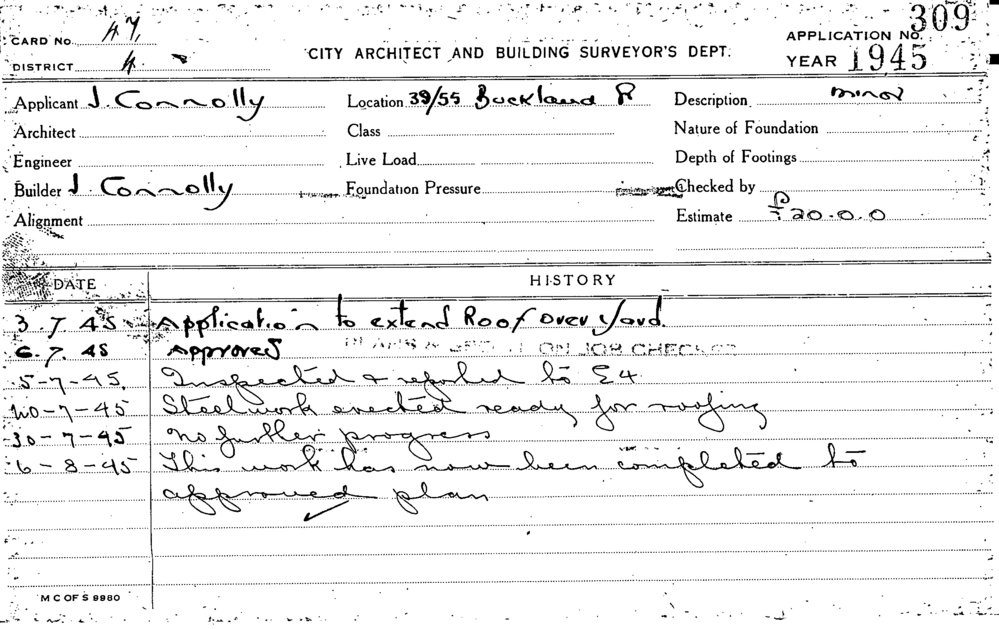 CARD NO. 47
DISTRICT 4
CITY ARCHITECT AND BUILDING SURVEYOR'S DEPT.
APPLICATION NO. 309
YEAR 1945
Applicant J. Connolly
Location 39/55 Buckland
Description minor
Architect
Class
Nature of Foundation
Engineer
Live Load
Depth of Footings
Builder J. Connolly
Foundation Pressure
Checked by
Alignment
Estimate £20.0.0
DATE HISTORY
3.7.45 Application to extend Roof over yard.
6.7.45 Approved ON JOB CHECKED
5-7-45 Inspected & reported to E4
10-7-45 Steelwork erected ready for roofing
30-7-45 No further progress
6-8-45 This work has now been completed to
approved plan
M C OF S 9980